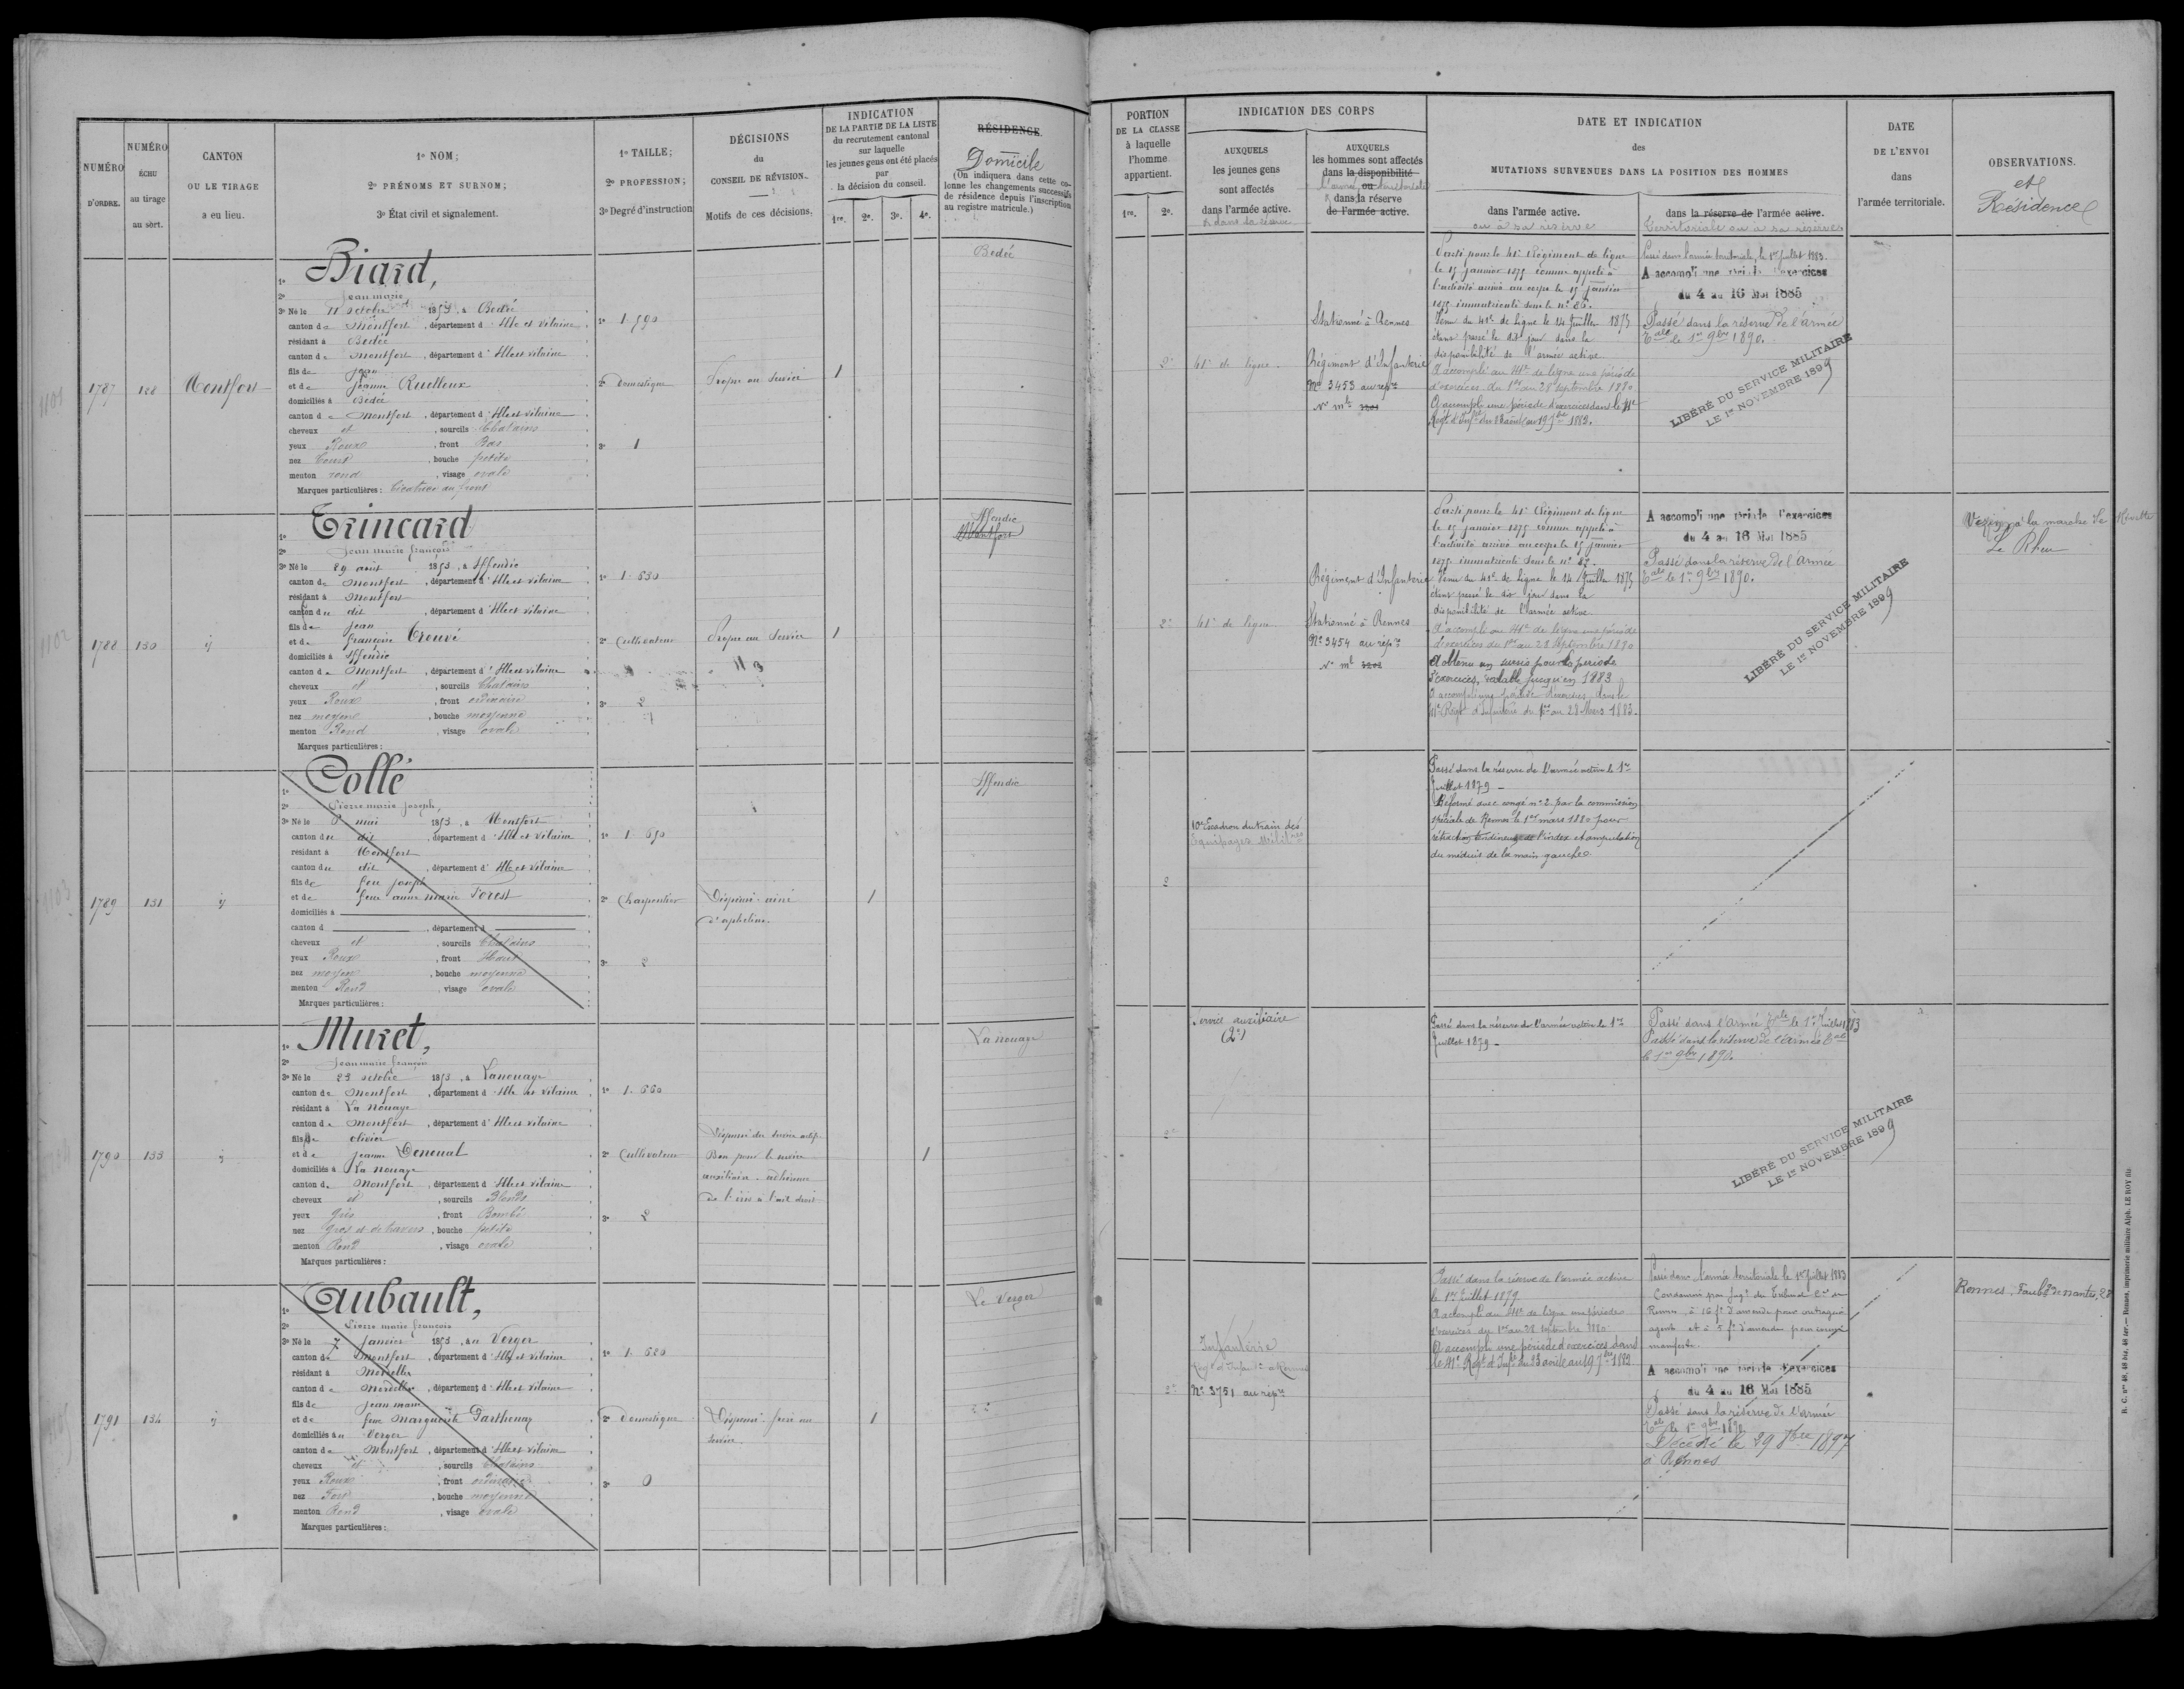 NUMÉRO
D'ORDRE.
NUMÉRO
ÉCHU
au tirage
au sort.
CANTON
OU LE TIRAGE
a eu lieu.
1º NOM;
2º PRÉNOMS ET SURNOM;
3º État civil et signalement.
1º TAILLE;
2º PROFESSION;
3º Degré d'instruction
DÉCISIONS
du
CONSEIL DE RÉVISION.
Motifs de ces décisions.
INDICATION
DE LA PARTIE DE LA LISTE
du recrutement cantonal
sur laquelle
les jeunes gens ont été placés
par
la décision du conseil.
1re. 2e. 3e. 4e.
RÉSIDENCE.
Domicile
(On indiquera dans cette co-
lonne les changements successifs
de résidence depuis l'inscription
au registre matricule.)
1787
128
Montfort
1º Biard,
2º Jean marie
3º Né le 11 octobre 1853, à Bedée
canton de Montfort, département d'Ille et vilaine
résidant à Bedée
canton de Montfort, département d'Ille et vilaine
fils de Jean
et de Jeanne Ruelloux
domiciliés à Bedée
canton de Montfort, département d'Ille et vilaine
cheveux et, sourcils Chatains
yeux Roux, front Bas
nez Court, bouche petite
menton rond, visage ovale
Marques particulières: Cicatrice au front
1º 1.590
2º Domestique
3º 1
Propre au Service
1
Bedée
1788
130
ij
1º Trincard
2º Jean marie françois
3º Né le 29 août 1853, à Iffendic
canton de Montfort, département d'Ille et vilaine
résidant à Montfort
canton du dit, département d'Ille et vilaine
fils de Jean
et de françoise Trouvé
domiciliés à Iffendic
canton de Montfort, département d'Ille et vilaine
cheveux et, sourcils Chatains
yeux Roux, front ordinaire
nez moyen, bouche moyenne
menton Rond, visage ovale
Marques particulières:
1º 1.630
2º Cultivateur
3º 2
Propre au Service
1
Iffendic
Montfort
1789
131
ij
1º Collé
2º Pierre marie Joseph,
3º Né le 8 mai 1853, à Montfort
canton du dit, département d'Ille et vilaine
résidant à Montfort
canton du dit, département d'Ille et vilaine
fils de feu joseph
et de feue anne marie Forest
domiciliés à
canton d , département d
cheveux et, sourcils Chatains
yeux Roux, front Haut
nez moyen, bouche moyenne
menton Rond, visage ovale
Marques particulières:
1º 1.650
2º Charpentier
3º 2
Dispensé. ainé
d'orphelins.
1
Iffendic
1790
133
ij
1º Muret,
2º Jean marie françois
3º Né le 23 octobre 1853, à Lanouaye
canton de Montfort, département d'Ille et vilaine
résidant à La nouaye
canton de Montfort, département d'Ille et vilaine
fils de olivier
et de jeanne Deneual
domiciliés à La nouaye
canton de Montfort, département d'Ille et vilaine
cheveux et, sourcils Blonds
yeux gris, front Bombé
nez gros et de travers, bouche petite
menton Rond, visage ovale
Marques particulières:
1º 1.660
2º Cultivateur
3º 2
Dispensé du service actif.
Bon pour le service
auxiliaire. adhérence
de l'iris à l'œil droit
1
La nouaye
1791
134
ij
1º Aubault,
2º Pierre marie françois
3º Né le 7 Janvier 1853, au Verger
canton de Montfort, département d'Ille et vilaine
résidant à Mordelles
canton de Mordelles, département d'Ille et vilaine
fils de Jean marie
et de feue Marguerite Parthenay
domiciliés au Verger
canton de Montfort, département d'Ille et vilaine
cheveux et, sourcils Chatains
yeux Roux, front ordinaire
nez Fort, bouche moyenne
menton Rond, visage ovale
Marques particulières:
1º 1.620
2º Domestique
3º 0
Dispensé. frère au
service.
1
Le Verger
PORTION
DE LA CLASSE
à laquelle
l'homme
appartient.
1re. 2e.
INDICATION DES CORPS
AUXQUELS
les jeunes gens
sont affectés
dans l'armée active.
& dans sa réserve
AUXQUELS
les hommes sont affectés
dans la disponibilité
ou
l'armée territoriale
& dans la réserve
de l'armée active.
DATE ET INDICATION
des
MUTATIONS SURVENUES DANS LA POSITION DES HOMMES
dans l'armée active.
ou à sa réserve
dans la réserve de l'armée active.
territoriale ou à sa réserve
DATE
DE L'ENVOI
dans
l'armée territoriale.
OBSERVATIONS.
et
Résidence
2e
41e de ligne.
Stationné à Rennes
Régiment d'Infanterie
Nº 3453 au rép.re
Nº m.le
Parti pour le 41e Régiment de ligne
le 15 janvier 1875 comme appelé à
l'activité arrivé au corps le 15 janvier
1875 immatriculé sous le nº 86.
Venu du 41e de Ligne le 14 Juillet 1875
étant passé le dit jour dans la
disponibilité de l'armée active
A accompli au 41e de ligne une période
d'exercices du 1er au 28 septembre 1880
A accompli une période d'exercices dans le 41e
Regt d'Infie du 23 août au 19 7bre 1882.
Passé dans l'armée territoriale, le 1er juillet 1883.
A accompli une période d'exercices
du 4 au 16 Mai 1885
Passé dans la réserve de l'armée
tale le 1er 9bre 1890.
LIBÉRÉ DU SERVICE MILITAIRE
LE 1er NOVEMBRE 1899
2e
41e de ligne.
Régiment d'Infanterie
Stationné à Rennes
Nº 3454 au rép.re
Nº m.le
Parti pour le 41e Régiment de ligne
le 15 janvier 1875 comme appelé à
l'activité arrivé au corps le 15 janvier
1875 immatriculé sous le nº 87.
Venu du 41e de Ligne le 14 Juillet 1875
étant passé le dit jour dans la
disponibilité de l'armée active
A accompli au 41e de ligne une période
d'exercices du 1er au 28 septembre 1880
A obtenu un sursis pour la période
d'exercices, valable jusqu'en 1883
A accompli une période d'exercices dans le
41e Regt d'Infanterie du 1er au 28 Mars 1883.
A accompli une période d'exercices
du 4 au 16 Mai 1885
Passé dans la réserve de l'armée
tale le 1er 9bre 1890.
LIBÉRÉ DU SERVICE MILITAIRE
LE 1er NOVEMBRE 1899
Vezin, à la marche de
Le Rheu
2
10e Escadron du train des
Equipages Militres
Passé dans la réserve de l'armée active le 1er
Juillet 1879 –
Réformé avec congé nº 2 par la commission
spéciale de Rennes le 1er mars 1880 pour
rétraction tendineuse de l'index et amputation
du médius de la main gauche.
2e
Service auxiliaire
(2e)
Passé dans la réserve de l'armée active le 1er
Juillet 1879 –
Passé dans l'armée tale le 1er Juillet 1883
Passé dans la réserve de l'armée tale
le 1er 9bre 1890
LIBÉRÉ DU SERVICE MILITAIRE
LE 1er NOVEMBRE 1899
2e
Infanterie
Regt d'Infie St. à Rennes
Nº 3751 au rép.re
Passé dans la réserve de l'armée active
le 1er Juillet 1879
A accompli au 41e de ligne une période
d'exercices du 1er au 28 septembre 1880
A accompli une période d'exercices dans
le 41e Regt d'Infie du 23 août au 19 7bre 1882
Passé dans l'armée territoriale le 1er juillet 1883
Condamné par jugt du Tribunal Cel de
Rennes, à 16 f. d'amende pour outrages à
agents et à 5 f. d'amende pour ivresse
manifeste.
A accompli une période d'exercices
du 4 au 16 Mai 1885
Passé dans la réserve de l'armée
tale le 1er 9bre 1890
Décédé le 29 8bre 1897
à Rennes
Rennes, Faubg de nantes, 28
R. C. nos 48, 48 bis, 48 ter. — Rennes, imprimerie militaire Alph. LE ROY fils